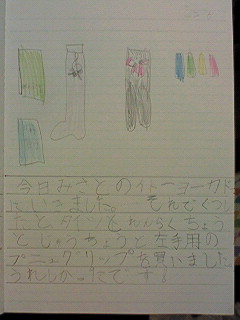 今日みさとのイトーヨーカド
にいきました。そんでくつし
たと、タイツとれんらくちょう
とじゆうちょうと左手用の
プニュグリップを買いました
うれしかったです!